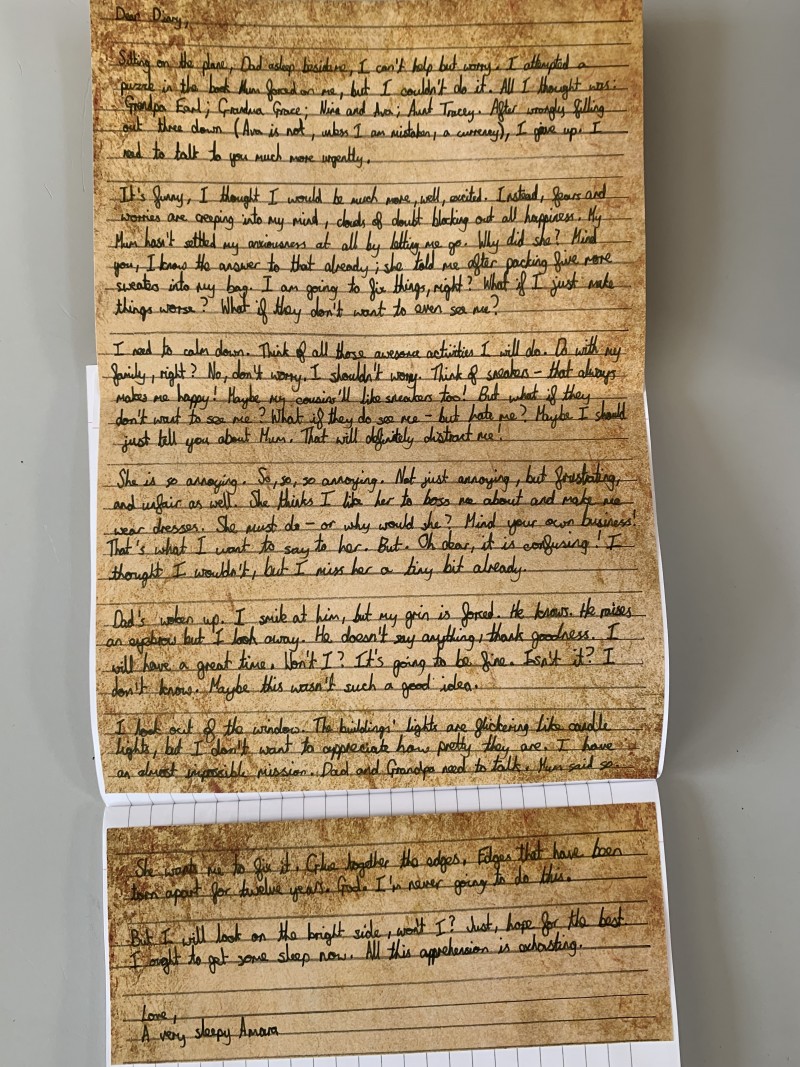 Dear Diary,
Sitting on the plane, Dad asleep beside me, I can't help but worry. I attempted a
puzzle in the book Mum forced on me, but I couldn't do it. All I thought was:
Grandpa Earl; Grandma Grace; Nina and Ava; Aunt Tracey. After wrongly filling
out three down (Ava is not, unless I am mistaken, a currency), I gave up. I
need to talk to you much more urgently.
It's funny, I thought I would be much more, well, excited. Instead, fears and
worries are creeping into my mind, clouds of doubt blocking out all happiness. My
Mum hasn't settled my anxiousness at all by letting me go. Why did she? Mind
you, I know the answer to that already; she told me after packing five more
sweaters into my bag. I am going to fix things, right? What if I just make
things worse? What if they don't want to even see me?
I need to calm down. Think of all those awesome activities I will do. Do with my
family, right? No, don't worry. I shouldn't worry. Think of sneakers – that always
makes me happy! Maybe my cousins'll like sneakers too! But what if they
don't want to see me? What if they do see me – but hate me? Maybe I should
just tell you about Mum. That will definitely distract me!
She is so annoying. So, so, so annoying. Not just annoying, but frustrating,
and unfair as well. She thinks I like her to boss me about and make me
wear dresses. She must do – or why would she? Mind your own business!
That's what I want to say to her. But. Oh dear, it is confusing! I
thought I wouldn't, but I miss her a tiny bit already.
Dad's woken up. I smile at him, but my grin is forced. He knows. He raises
an eyebrow but I look away. He doesn't say anything, thank goodness. I
will have a great time. Won't I? It's going to be fine. Isn't it? I
don't know. Maybe this wasn't such a good idea.
I look out of the window. The buildings' lights are flickering like candle
lights, but I don't want to appreciate how pretty they are. I have
an almost impossible mission. Dad and Grandpa need to talk. Mum said so.
She wants me to fix it. Glue together the edges. Edges that have been
torn apart for twelve years. God. I'm never going to do this.
But I will look on the bright side, won't I? Just, hope for the best.
I ought to get some sleep now. All this apprehension is exhausting.
Love,
A very sleepy Amara